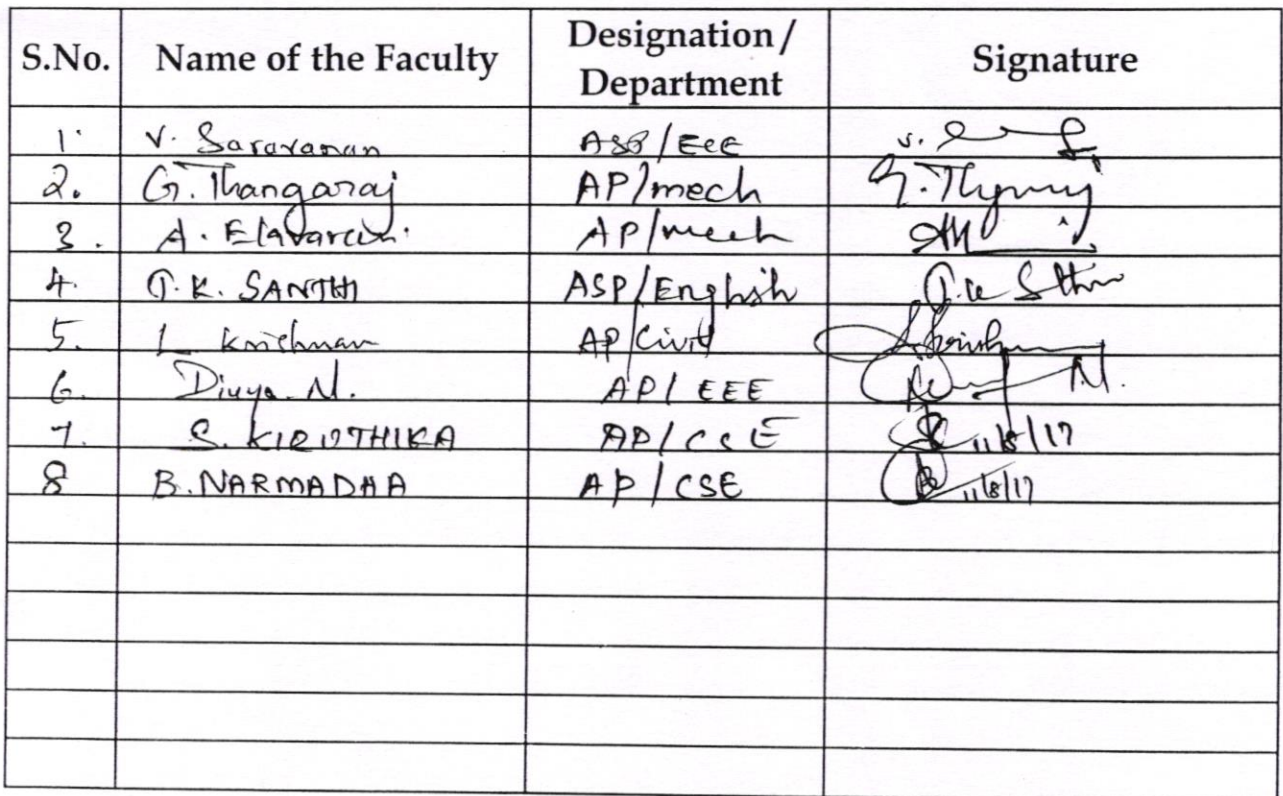 S.No. Name of the Faculty Designation / Department Signature
1. V. Saravanan ASP/EEE V.
2. G. Thangaraj AP/mech G. Thangaraj
3. A. AP/mech
4. T.K. SANTHI ASP/English T.K
5. L Krishnan AP/Civil
6. Divya. N. AP/ EEE N.
7. S. KIRUTHIKA AP/CSE 11/8/17
8 B. NARMADHA AP/CSE 11/8/17